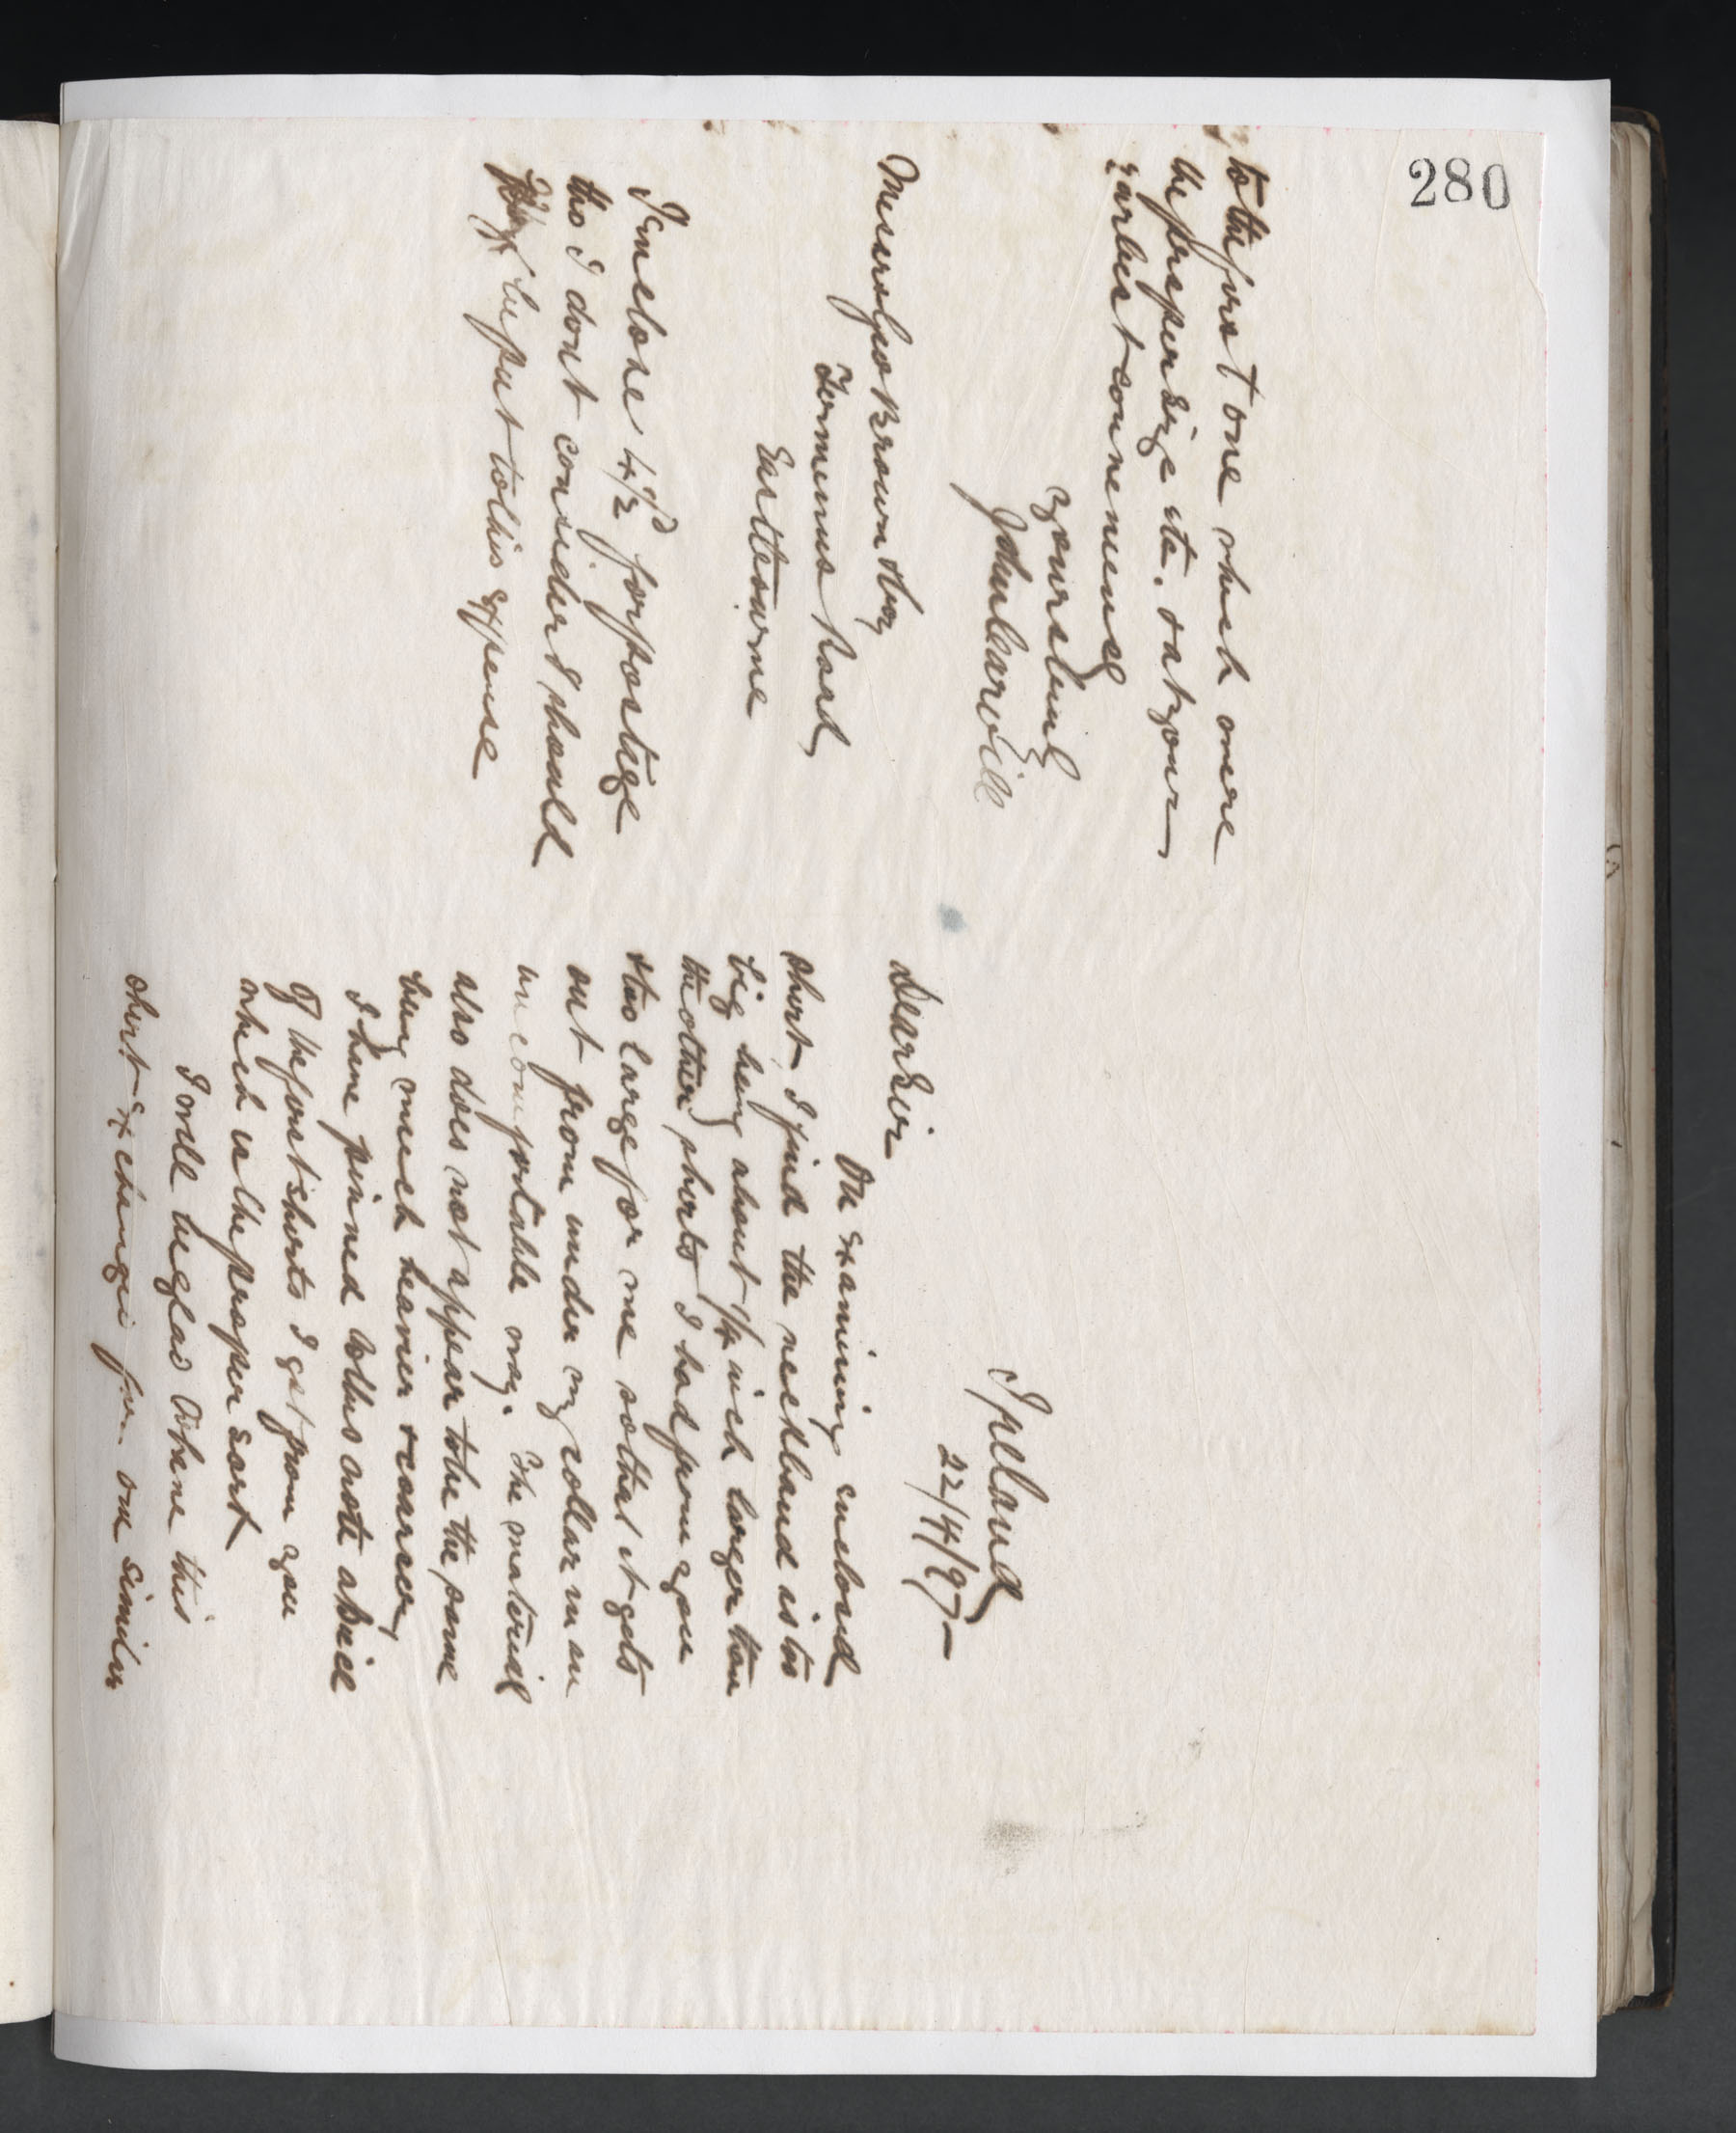 280
Ipeland
22/4/97
Dear Sir
On examining enclosed
shirt I find the neckband is too
big being about 1/4 inch larger than
the other shirts I had from you
& too large for me so that it gets
out from under my collar in an
uncomfortable way. The material
also does not appear to be the same
being much heavier & coarser
I have pinned to this note a piece
of the first shirts I got from you
which is the proper sort
I will be glad to have this
shirt exchanged for one similar
to the first one which were
the proper size etc. at your
earliest convenience
Yours truly
John Carvill
Messrs Geo Brown &
Terminus Road
Eastbourne
I enclose 4 1/2d for postage
tho I dont consider I should
be put to this expense